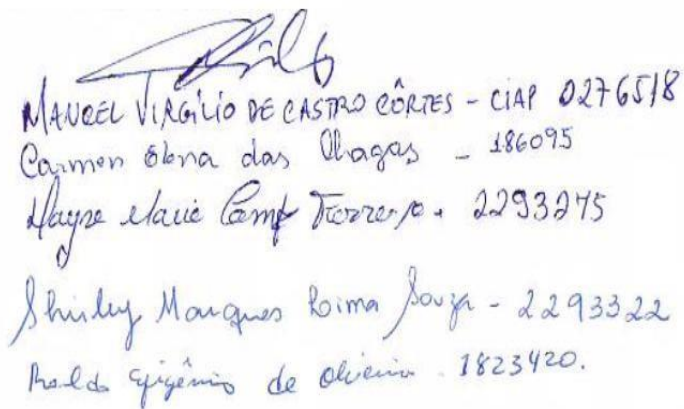 MANOEL VIRGÍLIO DE CASTRO CÔRTES - CIAP 0276518
Carmen Elena das Chagas - 186095
Mayse Marie 2293275
Shirley Marques Souza - 2293322
Epigênio de Oliveira . 1823420.